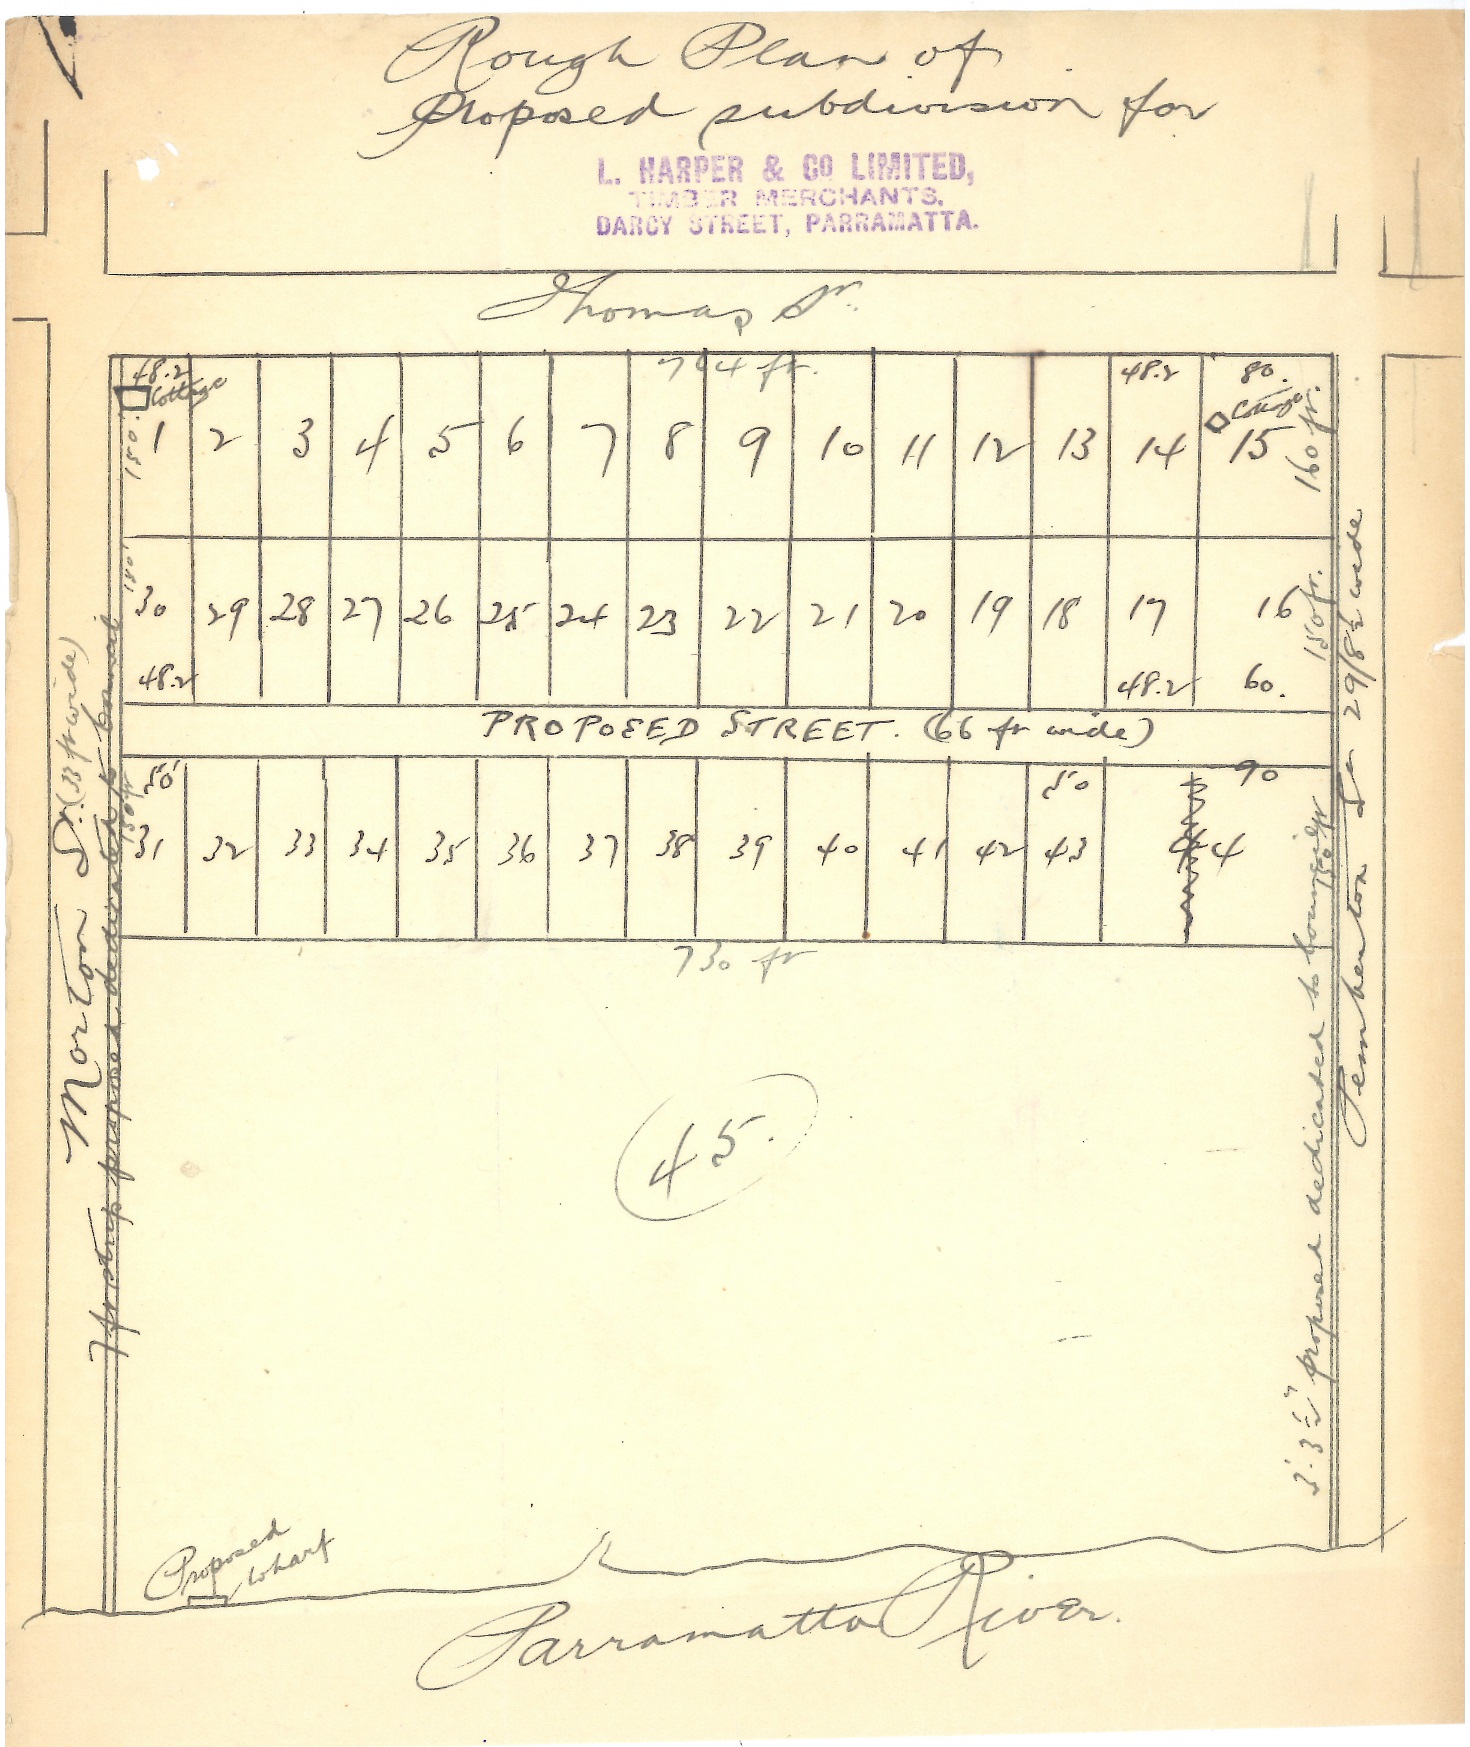 Rough Plan of
proposed subdivision for
L. HARPER & CO LIMITED,
TIMBER MERCHANTS,
DARCY STREET, PARRAMATTA.
Thomas St.
48.2 48.2 80.
Cottage Cottage
150' 160 ft.
1 2 3 4 5 6 7 8 9 10 11 12 13 14 15
150' 150 ft.
30 29 28 27 26 25 24 23 22 21 20 19 18 17 16
48.2 48.2 60.
PROPOSED STREET. (66 ft wide)
50' 50 90
150 ft 150 ft
31 32 33 34 35 36 37 38 39 40 41 42 43 44
730 ft
45.
Morton St. (33 ft wide)
7 ft strip proposed dedicated to Council
3'. 3½" proposed dedicated to Council
Pemberton St 29/8½ wide
Proposed
Wharf
Parramatta River.